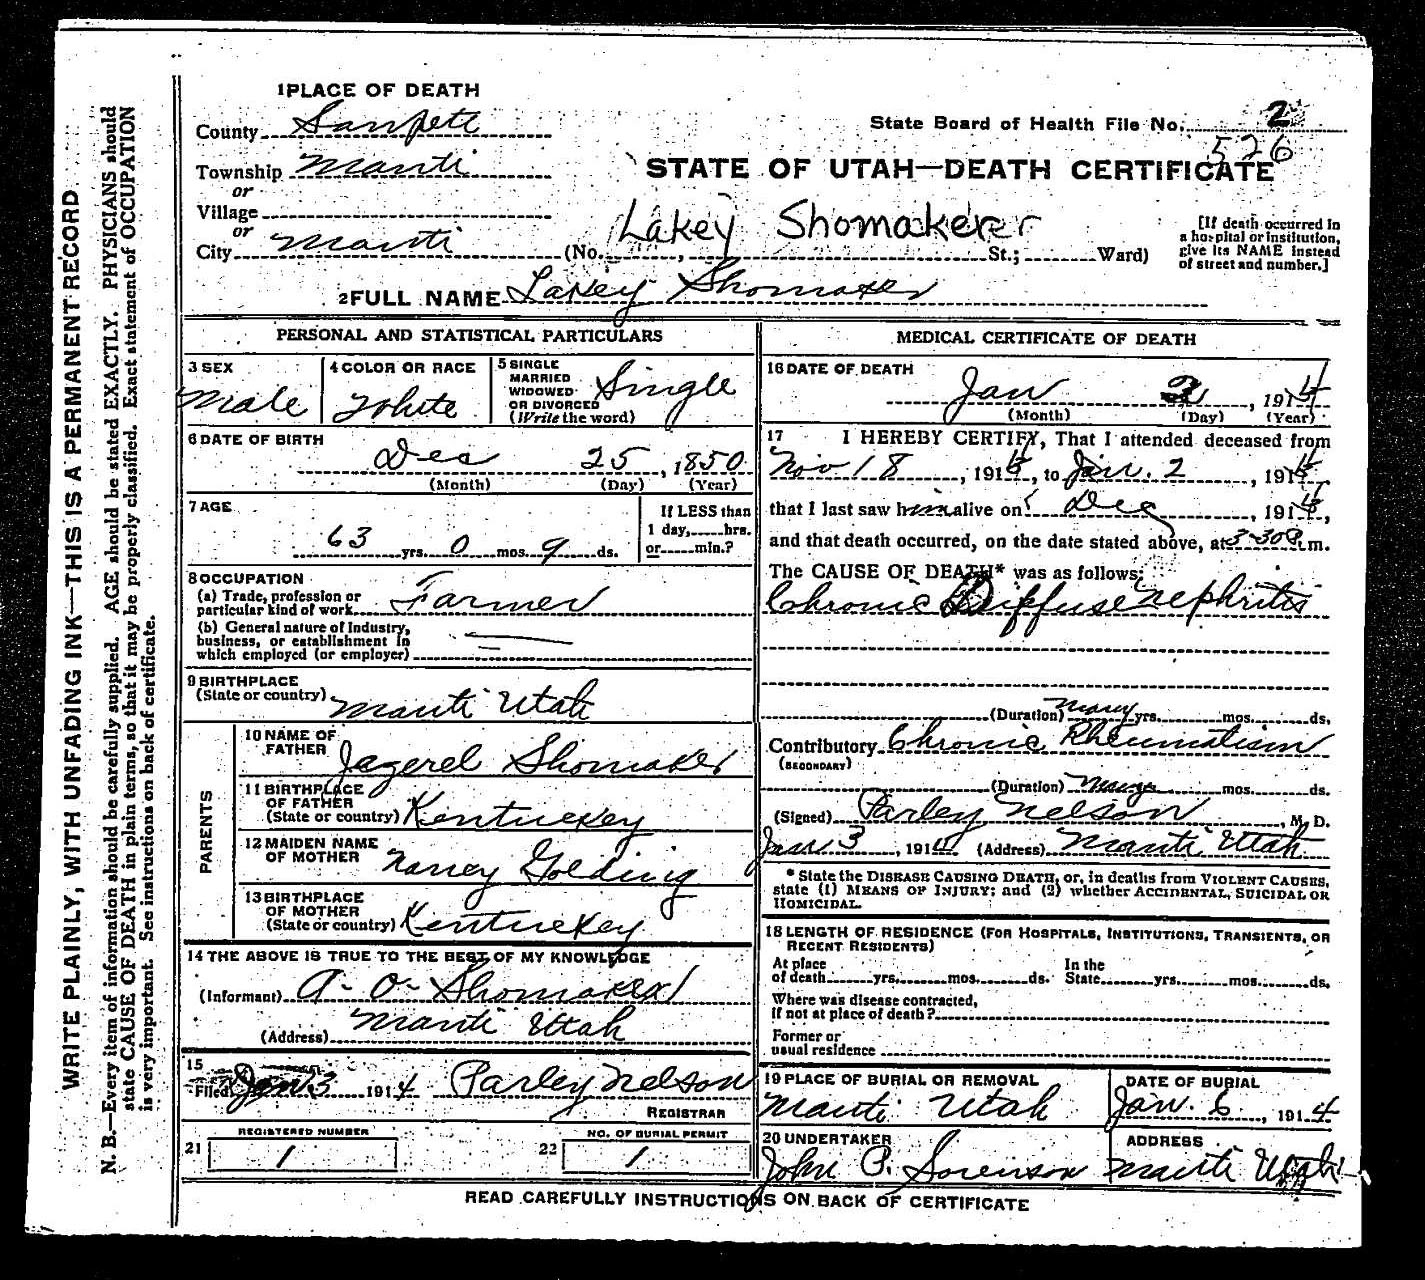 1 PLACE OF DEATH
County Sanpete
State Board of Health File No. 2
526
Township Manti
or
STATE OF UTAH—DEATH CERTIFICATE
Village
or
Lakey Shomaker
City Manti (No. , St.; Ward)
[If death occurred in
a hospital or institution,
give its NAME instead
of street and number.]
2 FULL NAME Lakey Shomaker
PERSONAL AND STATISTICAL PARTICULARS
3 SEX
Male
4 COLOR OR RACE
White
5 SINGLE
MARRIED
WIDOWED
OR DIVORCED
(Write the word)
Single
6 DATE OF BIRTH
Dec 25, 1850
(Month) (Day) (Year)
7 AGE
63 yrs. 0 mos. 9 ds.
If LESS than
1 day, hrs.
or min.?
8 OCCUPATION
(a) Trade, profession or
particular kind of work Farmer
(b) General nature of Industry,
business, or establishment in
which employed (or employer)
9 BIRTHPLACE
(State or country) Manti Utah
PARENTS
10 NAME OF
FATHER Jazerel Shomaker
11 BIRTHPLACE
OF FATHER
(State or country) Kentuckey
12 MAIDEN NAME
OF MOTHER Nancy Golding
13 BIRTHPLACE
OF MOTHER
(State or country) Kentuckey
14 THE ABOVE IS TRUE TO THE BEST OF MY KNOWLEDGE
(Informant) A- O- Shomaker
(Address) Manti Utah
15
Filed Jan 3 1914 Parley Nelson
REGISTRAR
REGISTERED NUMBER
21 1
NO. OF BURIAL PERMIT
22 1
MEDICAL CERTIFICATE OF DEATH
16 DATE OF DEATH
Jan 2, 1914
(Month) (Day) (Year)
17 I HEREBY CERTIFY, That I attended deceased from
Nov 18, 191 , to Jan. 2, 1914
that I last saw him alive on Dec, 191 ,
and that death occurred, on the date stated above, at 3-30 m.
The CAUSE OF DEATH* was as follows:
Chronic Diffuse nephritis
(Duration) Many yrs. mos. ds.
Contributory Chronic Rheumatism
(SECONDARY)
(Duration) Many mos. ds.
(Signed) Parley Nelson, M. D.
Jan. 3, 1914 (Address) Manti Utah
* State the DISEASE CAUSING DEATH, or, in deaths from VIOLENT CAUSES,
state (1) MEANS OF INJURY; and (2) whether ACCIDENTAL, SUICIDAL OR
HOMICIDAL.
18 LENGTH OF RESIDENCE (FOR HOSPITALS, INSTITUTIONS, TRANSIENTS, OR
RECENT RESIDENTS)
At place In the
of death yrs. mos. ds. State yrs. mos. ds.
Where was disease contracted,
if not at place of death?
Former or
usual residence
19 PLACE OF BURIAL OR REMOVAL
Manti Utah
DATE OF BURIAL
Jan. 6, 1914
20 UNDERTAKER
John P. Sorenson
ADDRESS
Manti Utah
READ CAREFULLY INSTRUCTIONS ON BACK OF CERTIFICATE
WRITE PLAINLY, WITH UNFADING INK—THIS IS A PERMANENT RECORD
N. B.—Every item of information should be carefully supplied. AGE should be stated EXACTLY. PHYSICIANS should
state CAUSE OF DEATH in plain terms, so that it may be properly classified. Exact statement of OCCUPATION
is very important. See instructions on back of certificate.